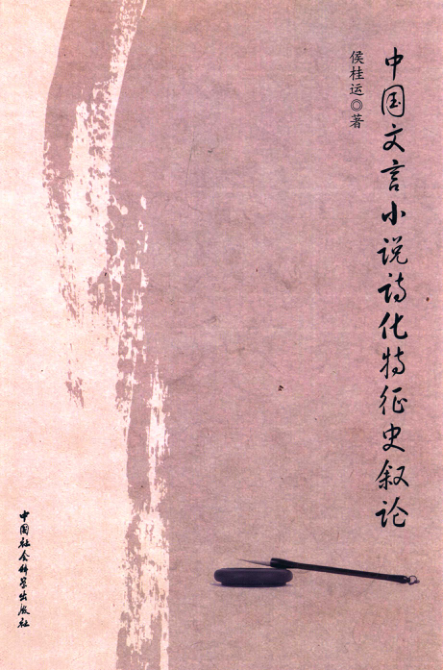 中国文言小说诗化特征史叙论
侯桂运◎著
中国社会科学出版社